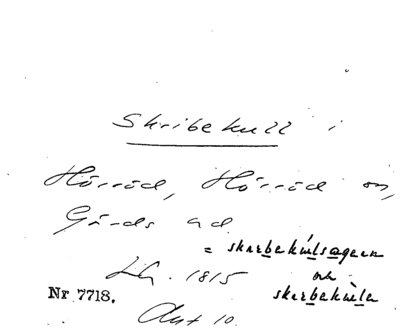 Skribekull i
Hörröd, Hörröd sn,
Gärds hd
= skarbekulsagarn
LA. 1815 och
Nr 7718. skarbekula
Akt 10